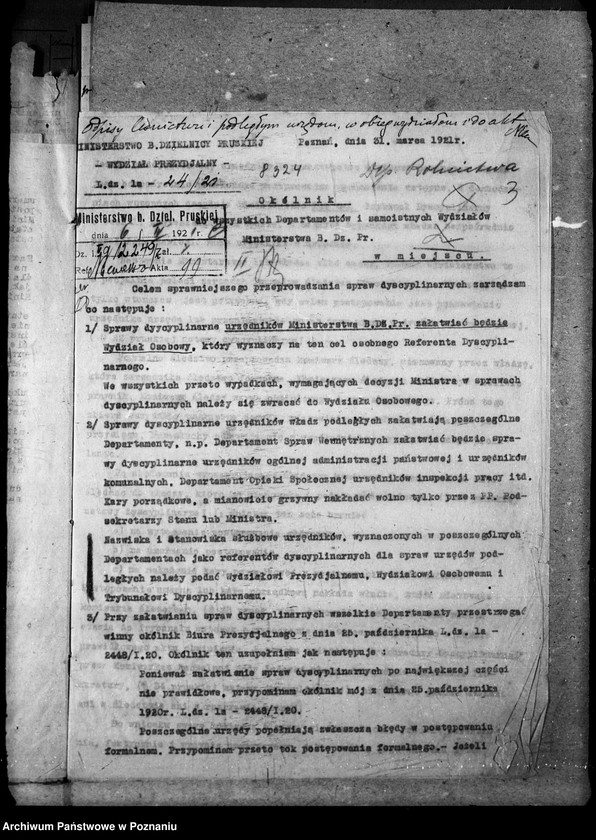 Odpisy Lesnictwu i podległym urzędom, w obieg wydziałom i do akt
MINISTERSTWO B.DZIELNICY PRUSKIEJ Poznań, dnia 31. marca 1921r.
- WYDZIAŁ PREZYDJALNY -
8324 dep Rolnictwa
L.dz. 1a - 24/21
3
Okólnik
Ministerstwo b. Dziel. Pruskiej
wszystkich Departamentów i samoistnych Wydziałów
dnia 6 192 r.
Ministerstwa B. Dz. Pr.
Dz. zał.
w miejscu.
Ref. Akta 99
Celem sprawniejszego przeprowadzania spraw dyscyplinarnych zarządzam
co następuje :
1/ Sprawy dyycyplinarne urzędników Ministerstwa B.Dz.Pr. załatwiać będzie
Wydział Osobowy, który wyznaczy na ten cel osobnego Referenta Dyscypli-
narnego.
We wszystkich przeto wypadkach, wymagających decyzji Ministra w sprawach
dyscyplinarnych należy się zwracać do Wydziału Osobowego.
2/ Sprawy dyscyplinarne urzędników władz podległych załatwiają poszczególne
Departamenty, n.p. Departament Spraw Wewnętrznych załatwiać będzie spra-
wy dyscyplinarne urzędników ogólnej administracji państwowej i urzędników
komunalnych, Departament Opieki Społecznej urzędników inspekcji pracy itd.
Kary porządkowe, a mianowicie grzywny nakładać wolno tylko przez PP. Pod-
sekretarzy Stanu lub Ministra.
Nazwiska i stanowiska służbowe urzędników, wyznaczonych w poszczególnych
Departamentach jako referentów dyscyplinarnych dla spraw urzędów pod-
ległych należy podać Wydziałowi Prezydjalnemu, Wydziałowi Osobowemu i
Trybunałowi Dyscyplinarnemu.
3/ Przy załatwianiu spraw dyscyplinarnych wszelkie Departamenty przestrzegać
winny okólnik Biura Prezydjalnego z dnia 25. października L.dz. 1a -
2448/I.20. Okólnik ten uzupełniam jak następuje :
Ponieważ załatwienie spraw dyscyplinarnych po największej części
nie prawidłowe, przypominam okólnik mój z dnia 25.października
1920r. L.dz. 1a - 2448/I.20.
Poszczególne urzędy popełniają zwłaszcza błędy w postępowaniu
formalnem. Przypominam przeto tok postępowania formalnego.- Jeżeli
Archiwum Państwowe w Poznaniu
szukajwarchiwach.gov.pl